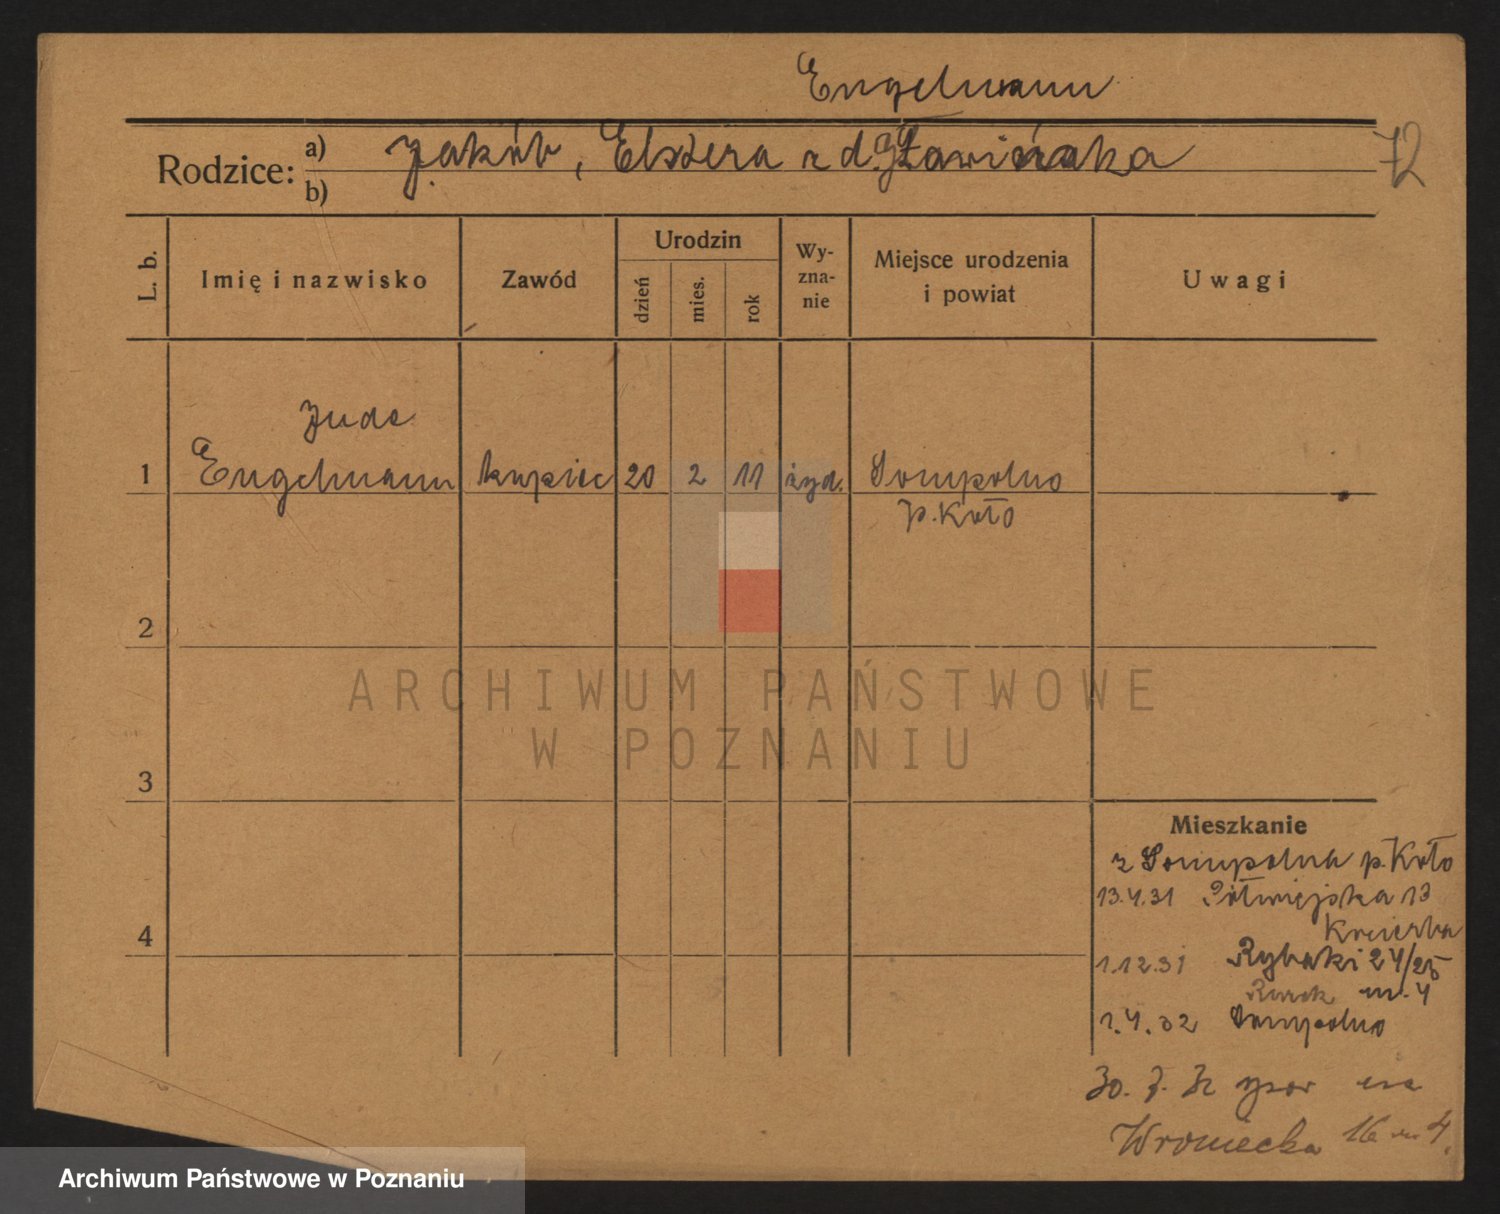 Engelmann
Rodzice: a) Jakób, Estera z d.
b)
72
L. b. Imię i nazwisko Zawód Urodzin dzień mies. rok Wyznanie Miejsce urodzenia i powiat Uwagi
Juda
1 Engelmann kupiec 20 2 11 żyd. Sompolno
p. Koło
2
ARCHIWUM PAŃSTWOWE
W POZNANIU
3
Mieszkanie
z Sompolna p. Koło
13.4.31 Półwiejska 13
4
1.12.31 Rybaki 24/25
m. 4
1.4.32 Sompolno
30. 7. 32
Wroniecka 16 m 4.
Archiwum Państwowe w Poznaniu